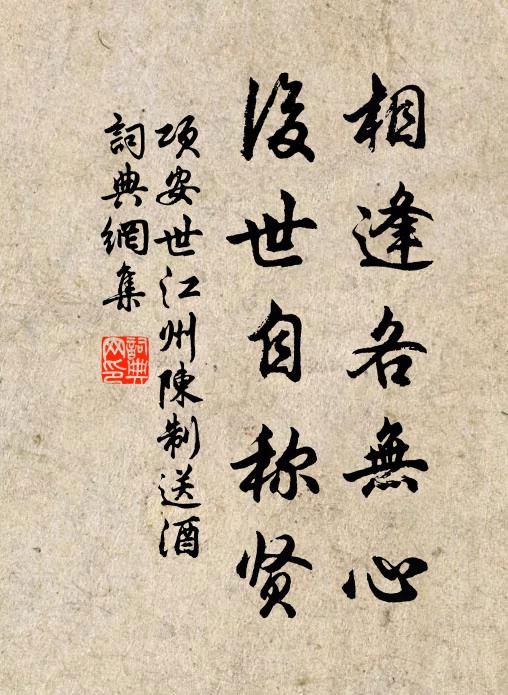 相逢各無心
後世自称贤
项安世江州陳制送酒
詞典網集
詞典網印